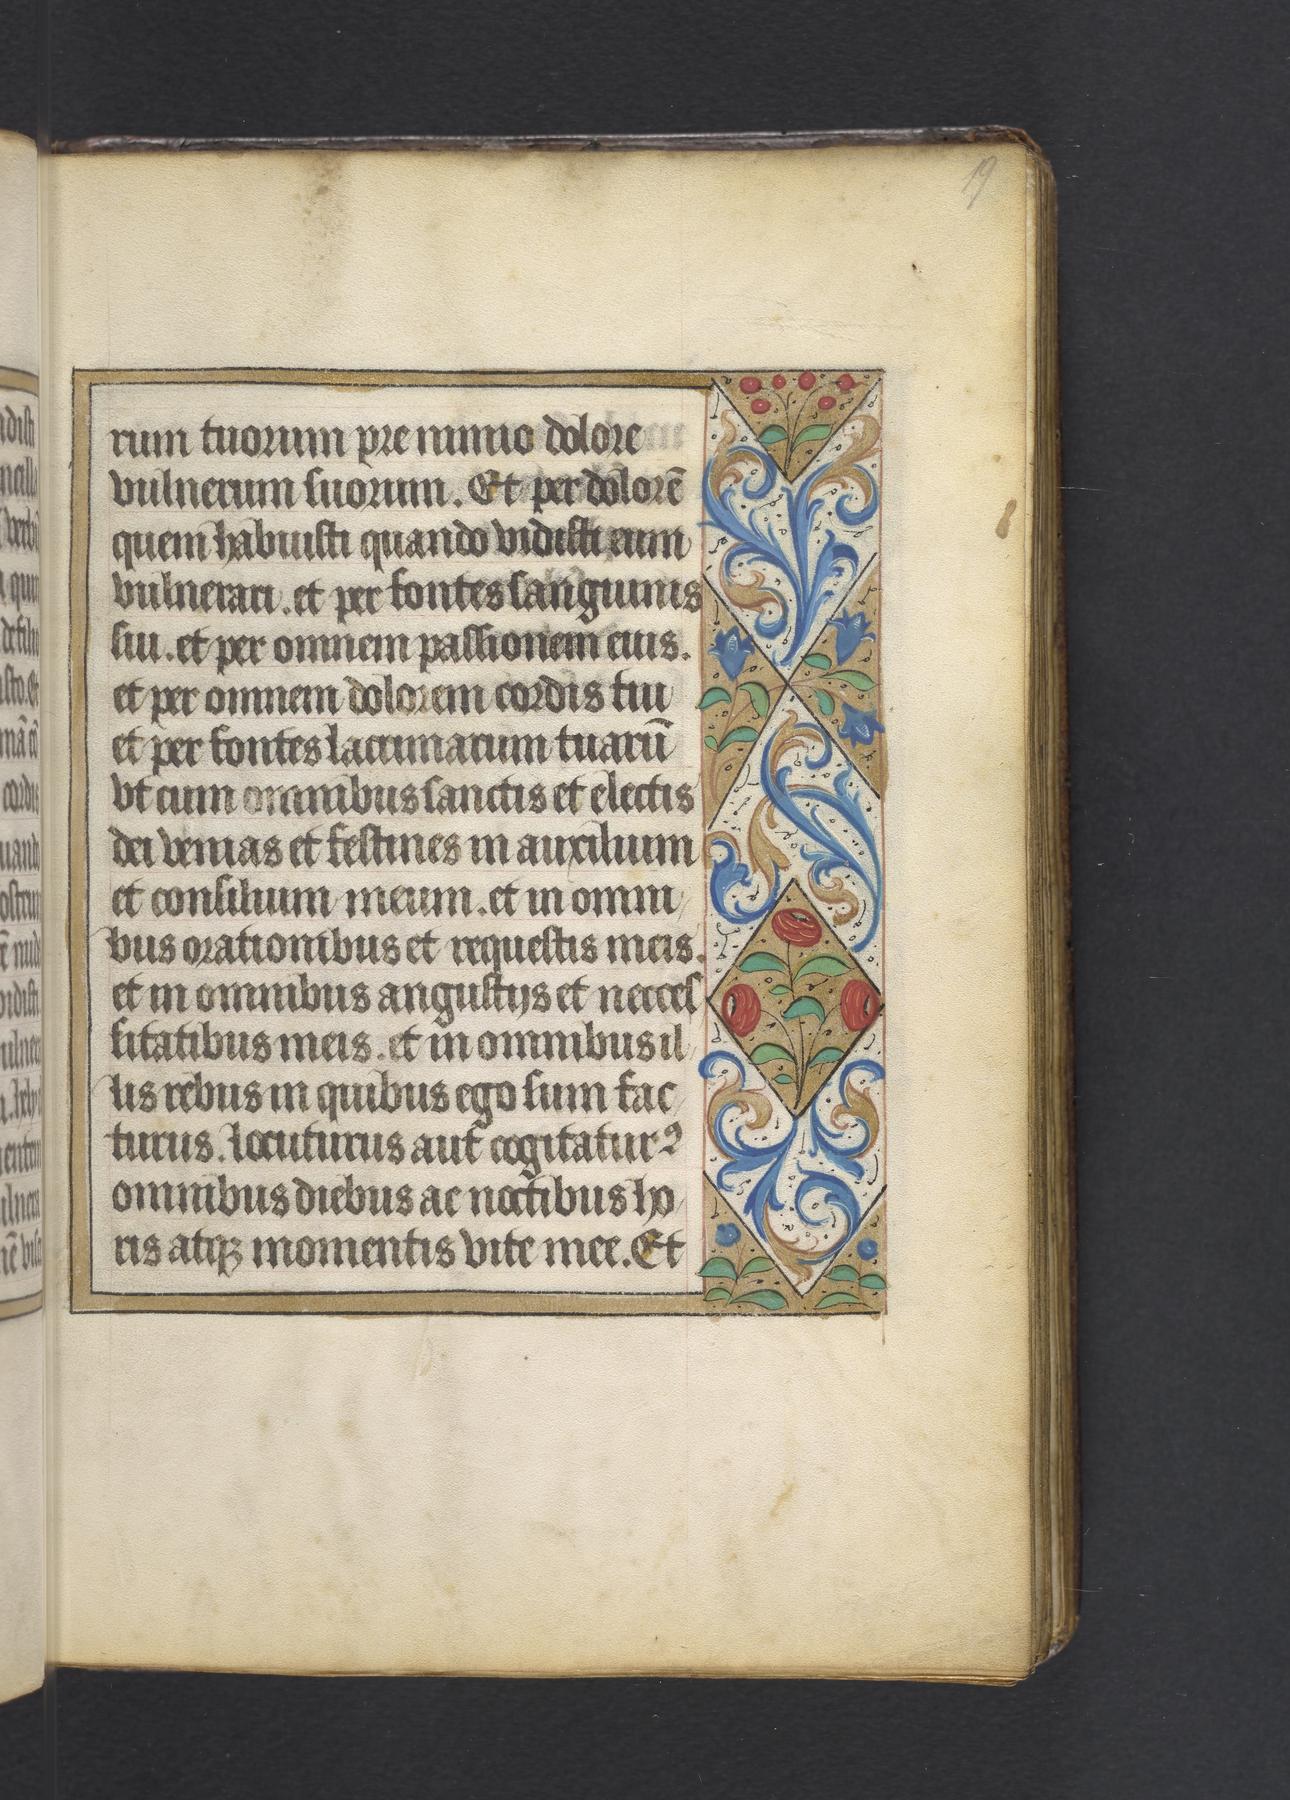 19
rum tuorum pre nimio dolore
vulnerum suorum. Et per dolorē
quem habuisti quando vidisti eum
vulnerari. et per fontes sanguinis
sui. et per omnem passionem eius.
et per omnem dolorem cordis tui
et per fontes lacrimarum tuarū
vt cum omnibus sanctis et electis
dei venias et festines in auxilium
et consilium meum. et in omni
bus orationibus et requestis meis.
et in omnibus angustijs et necces
sitatibus meis. et in omnibus il
lis rebus in quibus ego sum fac
turus. locuturus aut̄ cogitaturꝰ
omnibus diebus ac noctibus ho
ris atqꝫ momentis vite mee. Et